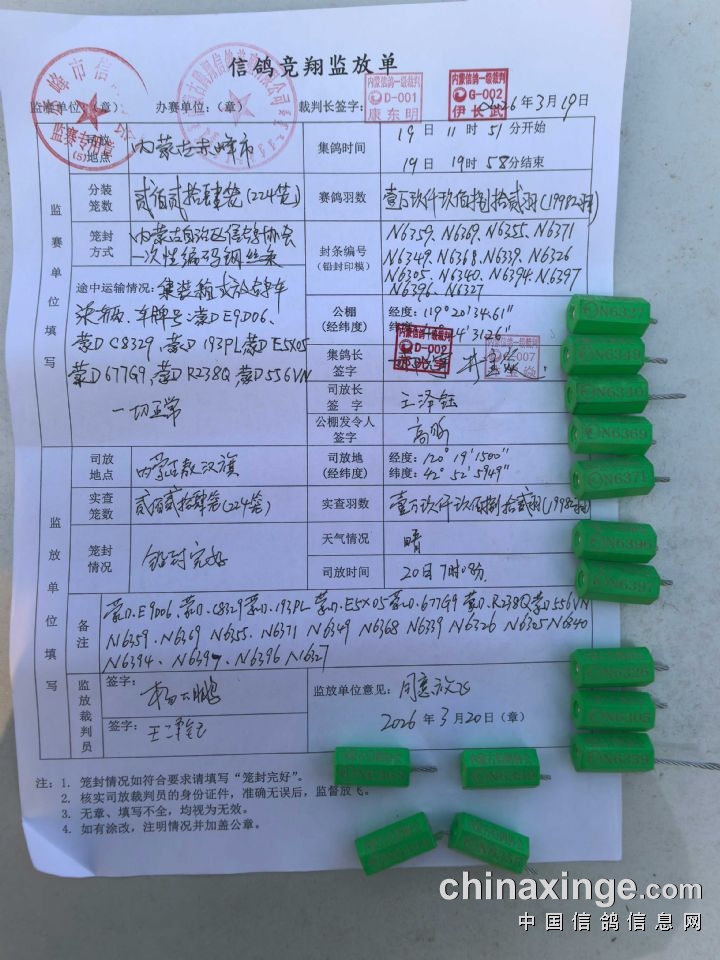 信鸽竞翔监放单
监赛单位:(章) 办赛单位:(章) 裁判长签字: 2026年3月19日
内蒙信鸽一级裁判
D-001
康东明
内蒙信鸽一级裁判
G-002
伊长武
监赛专用章
(5)
监赛单位填写
司放地点 内蒙古赤峰市 集鸽时间 19日11时51分开始
19日19时58分结束
分装笼数 贰佰贰拾肆笼(224笼) 赛鸽羽数 壹万玖仟玖佰捌拾贰羽(19982羽)
笼封方式 内蒙古自治区信鸽协会
一次性编码钢丝束
封条编号(铅封印模) N6359、N6369、N6355、N6371
N6349、N6368、N6339、N6326
N6305、N6340、N6394、N6397
N6396、N6327
途中运输情况:集装箱式放鸽车
柒辆、车牌号:蒙D E9D06、
蒙D C8329、蒙D 193PL、蒙D E5X05
蒙D 677G9、蒙D R238Q、蒙D 556VN
一切正常
公棚(经纬度) 经度:119°20′34.61″
集鸽长签字
内蒙信鸽一级裁判
D-002
司放长签字 王泽钰
公棚发令人签字
监放单位填写
司放地点 内蒙古敖汉旗 司放地(经纬度) 经度:120°19′1500″
纬度:42°52′5949″
实查笼数 贰佰贰拾肆笼(224笼) 实查羽数 壹万玖仟玖佰捌拾贰羽(19982羽)
笼封情况 笼封完好 天气情况 晴
司放时间 20日7时0分
备注 蒙D.E9D06、蒙D.C8329蒙D.193PL 蒙D.E5X05蒙D.677G9 蒙D.R238Q蒙D556VN
N6359、N6369 N6355、N6371 N6349 N6368 N6339 N6326 N6305 N6340
N6394、N6397、N6396 N6327
监放裁判员 签字:
签字:
监放单位意见:同意放飞
2026年3月20日(章)
注:1. 笼封情况如符合要求请填写“笼封完好”。
2. 核实司放裁判员的身份证件,准确无误后,监督放飞。
3. 无章、填写不全,均视为无效。
4. 如有涂改,注明情况并加盖公章。
N6327
N6349
N6340
N6369
N6371
N6396
N6397
N6326
N6305
N6339
chinaxinge.com
中国信鸽信息网